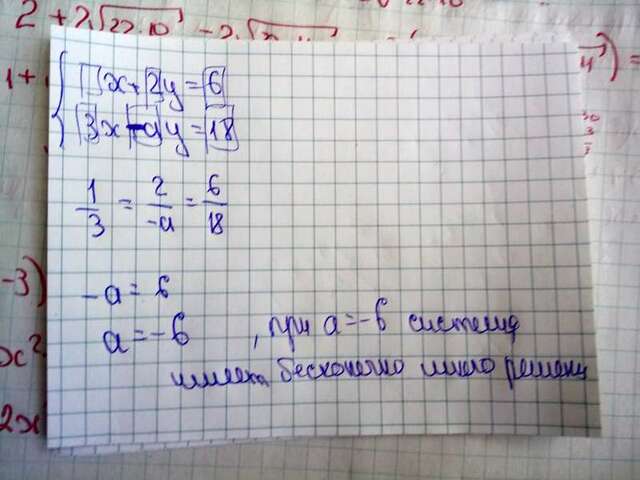 2 + 2√22·10
1 +
{ □x + 2y = 6
3x - ay = 18
1/3 = 2/-a = 6/18
-3)
-a = 6
a = -6 , при a = -6 система
имеет бесконечно много решени
x²
2x